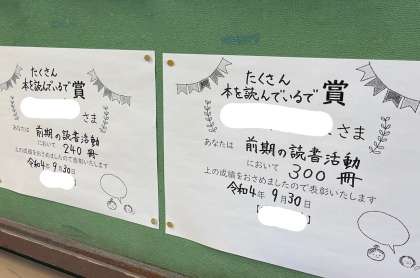 たくさん
本を読んでいるで賞
さま
あなたは 前期の読書活動
において 240 冊
上の成績をおさめましたので表彰いたします
令和4年 9月30日
たくさん
本を読んでいるで賞
さま
あなたは 前期の読書活動
において 300 冊
上の成績をおさめましたので表彰いたします
令和4年 9月30日